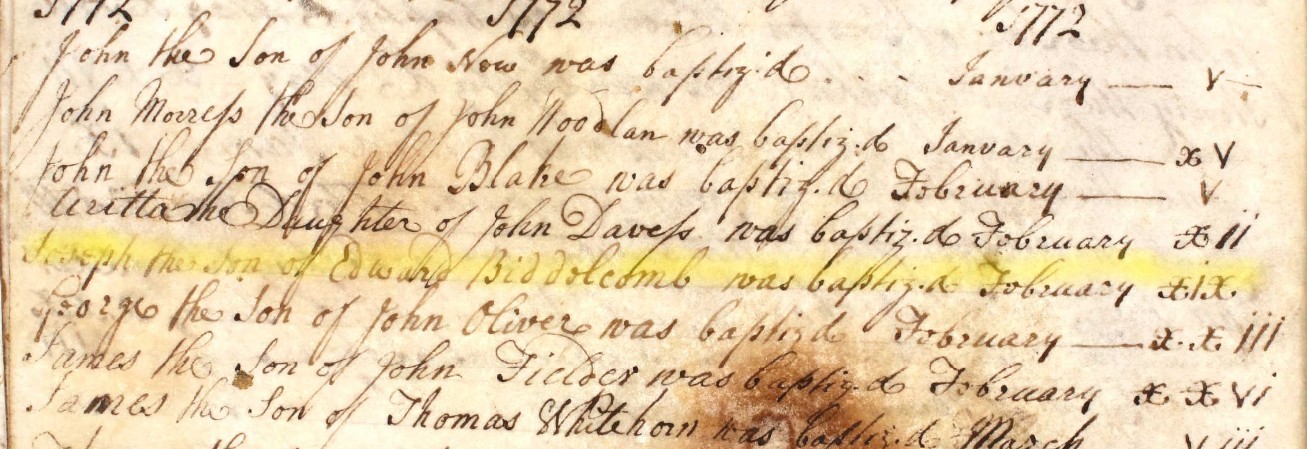 1772 1772 1772
John the Son of John New was baptiz'd . . - January — V —
John Morress the Son of John Woodlan was baptiz.d January — x V
John the Son of John Blake was baptiz.d February — V
the Daughter of John Davess was baptiz.d February x ii
Joseph the Son of Edward Biddolcomb was baptiz.d February xix
George the Son of John Oliver was baptizd February — x.x iii
James the Son of John Fielder was baptiz.d February x x Vi
James the Son of Thomas Whitehorn was baptiz.d March V iii